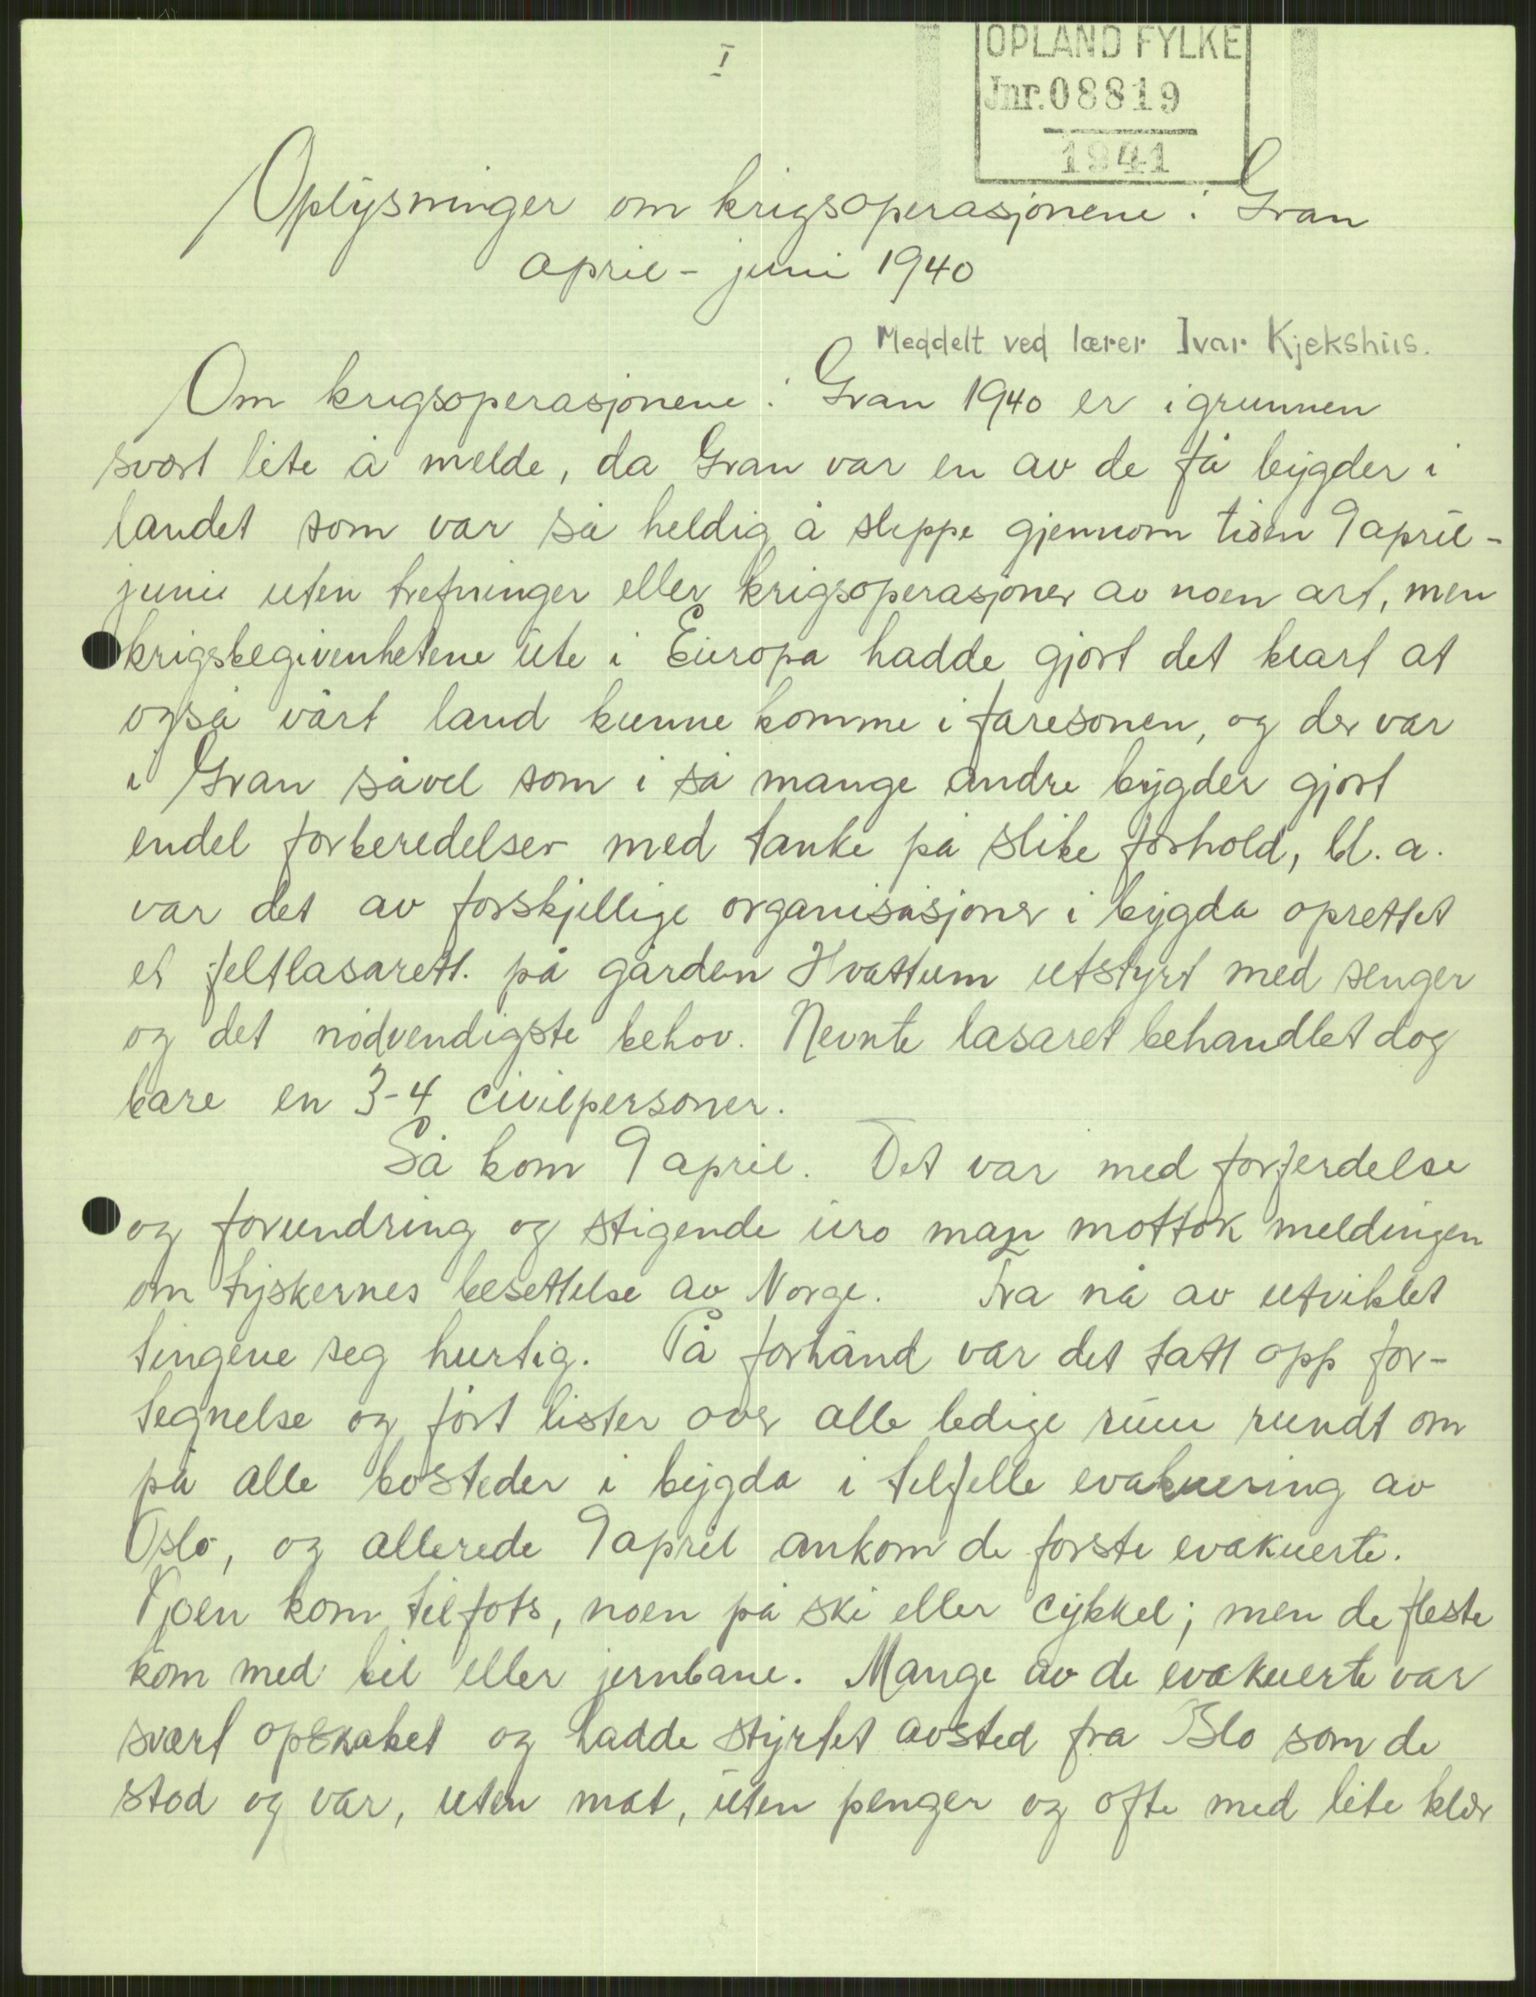 I
OPLAND FYLKE
Jnr. 08819
1941
Oplysninger om krigsoperasjonene i Gran
april - juni 1940
Meddelt ved lærer Ivar Kjekshus.
Om krigsoperasjonene i Gran 1940 er i grunnen
svært lite å melde, da Gran var en av de få bygder i
landet som var så heldig å slippe gjennom tiden 9 april -
juni uten trefninger eller krigsoperasjoner av noen art, men
krigsbegivenhetene ute i Europa hadde gjort det klart at
også vårt land kunne komme i faresonen, og der var
i Gran såvel som i så mange andre bygder gjort
endel forberedelser med tanke på slike forhold, bl. a.
var det av forskjellige organisasjoner i bygda oprettet
et feltlasarett. på gården Hvattum utstyrt med senger
og det nødvendigste behov. Nevnte lasaret behandlet dog
bare en 3-4 civilpersoner.
Så kom 9 april. Det var med forferdelse
og forundring og stigende uro man mottok meldingen
om tyskernes besettelse av Norge. Fra nå av utviklet
tingene seg hurtig. På forhånd var det tatt opp for-
tegnelse og ført lister over alle ledige rum rundt om
på alle bosteder i bygda i tilfelle evakuering av
Oslo, og allerede 9 april ankom de første evakuerte.
Noen kom tilfots, noen på ski eller cykkel; men de fleste
kom med bil eller jernbane. Mange av de evakuerte var
svært opskaket og hadde styrtet avsted fra Oslo som de
stod og var, uten mat, uten penger og ofte med lite klær